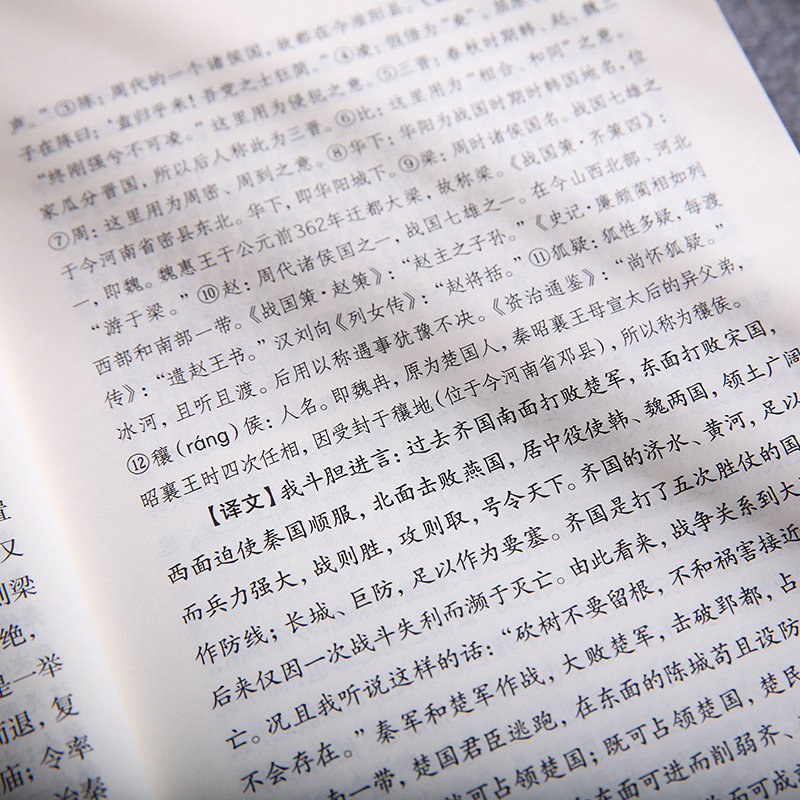 ③陈：周代的一个诸侯国，故都在今淮阳县。
声。”③陈：周代的一个诸侯国，故都在今淮阳县。
子在陈曰：‘盍归乎来！吾党之士狂简。”④凌：假借为“夌”。
“终刚强兮不可凌。”这里用为侵犯之意。⑤三晋：春秋时期韩、赵、魏三
家瓜分晋国，所以后人称此为三晋。⑥比：这里用为“相合、和同”之意。
⑦周：这里用为周密、周到之意。⑧华下：华阳为战国时期韩国地名，位
于今河南省密县东北。华下，即华阳城下。⑨梁：周时诸侯国名。战国七雄之
一，即魏。魏惠王于公元前362年迁都大梁，故称梁。《战国策·齐策四》：
“游于梁。”⑩赵：周代诸侯国之一，战国七雄之一。在今山西北部、河北
西部和南部一带。《战国策·赵策》：“赵主之子孙。”《史记·廉颇蔺相如列
传》：“遗赵王书。”汉刘向《列女传》：“赵将括。”⑪狐疑：狐性多疑，每渡
冰河，且听且渡。后用以称遇事犹豫不决。《资治通鉴》：“尚怀狐疑。”
⑫穰（ráng）侯：人名。即魏冉，原为楚国人，秦昭襄王母宣太后的异父弟，
昭襄王时四次任相，因受封于穰地（位于今河南省邓县），所以称为穰侯。
【译文】我斗胆进言：过去齐国南面打败楚军，东面打败宋国，
西面迫使秦国顺服，北面击败燕国，居中役使韩、魏两国，领土广阔
而兵力强大，战则胜，攻则取，号令天下。齐国的济水、黄河，足以
作防线；长城、巨防，足以作为要塞。齐国是打了五次胜仗的国
后来仅因一次战斗失利而濒于灭亡。由此看来，战争关系到大
亡。况且我听说这样的话：“砍树不要留根，不和祸害接近
不会存在。”秦军和楚军作战，大败楚军，击破郢都，占
南一带，楚国君臣逃跑，在东面的陈城苟且设防
可占领楚国；既可占领楚国，楚民
东面可进而削弱齐、
而可成
置
又
则梁
绝，
是一举
而退，复
庙；令率
治秦